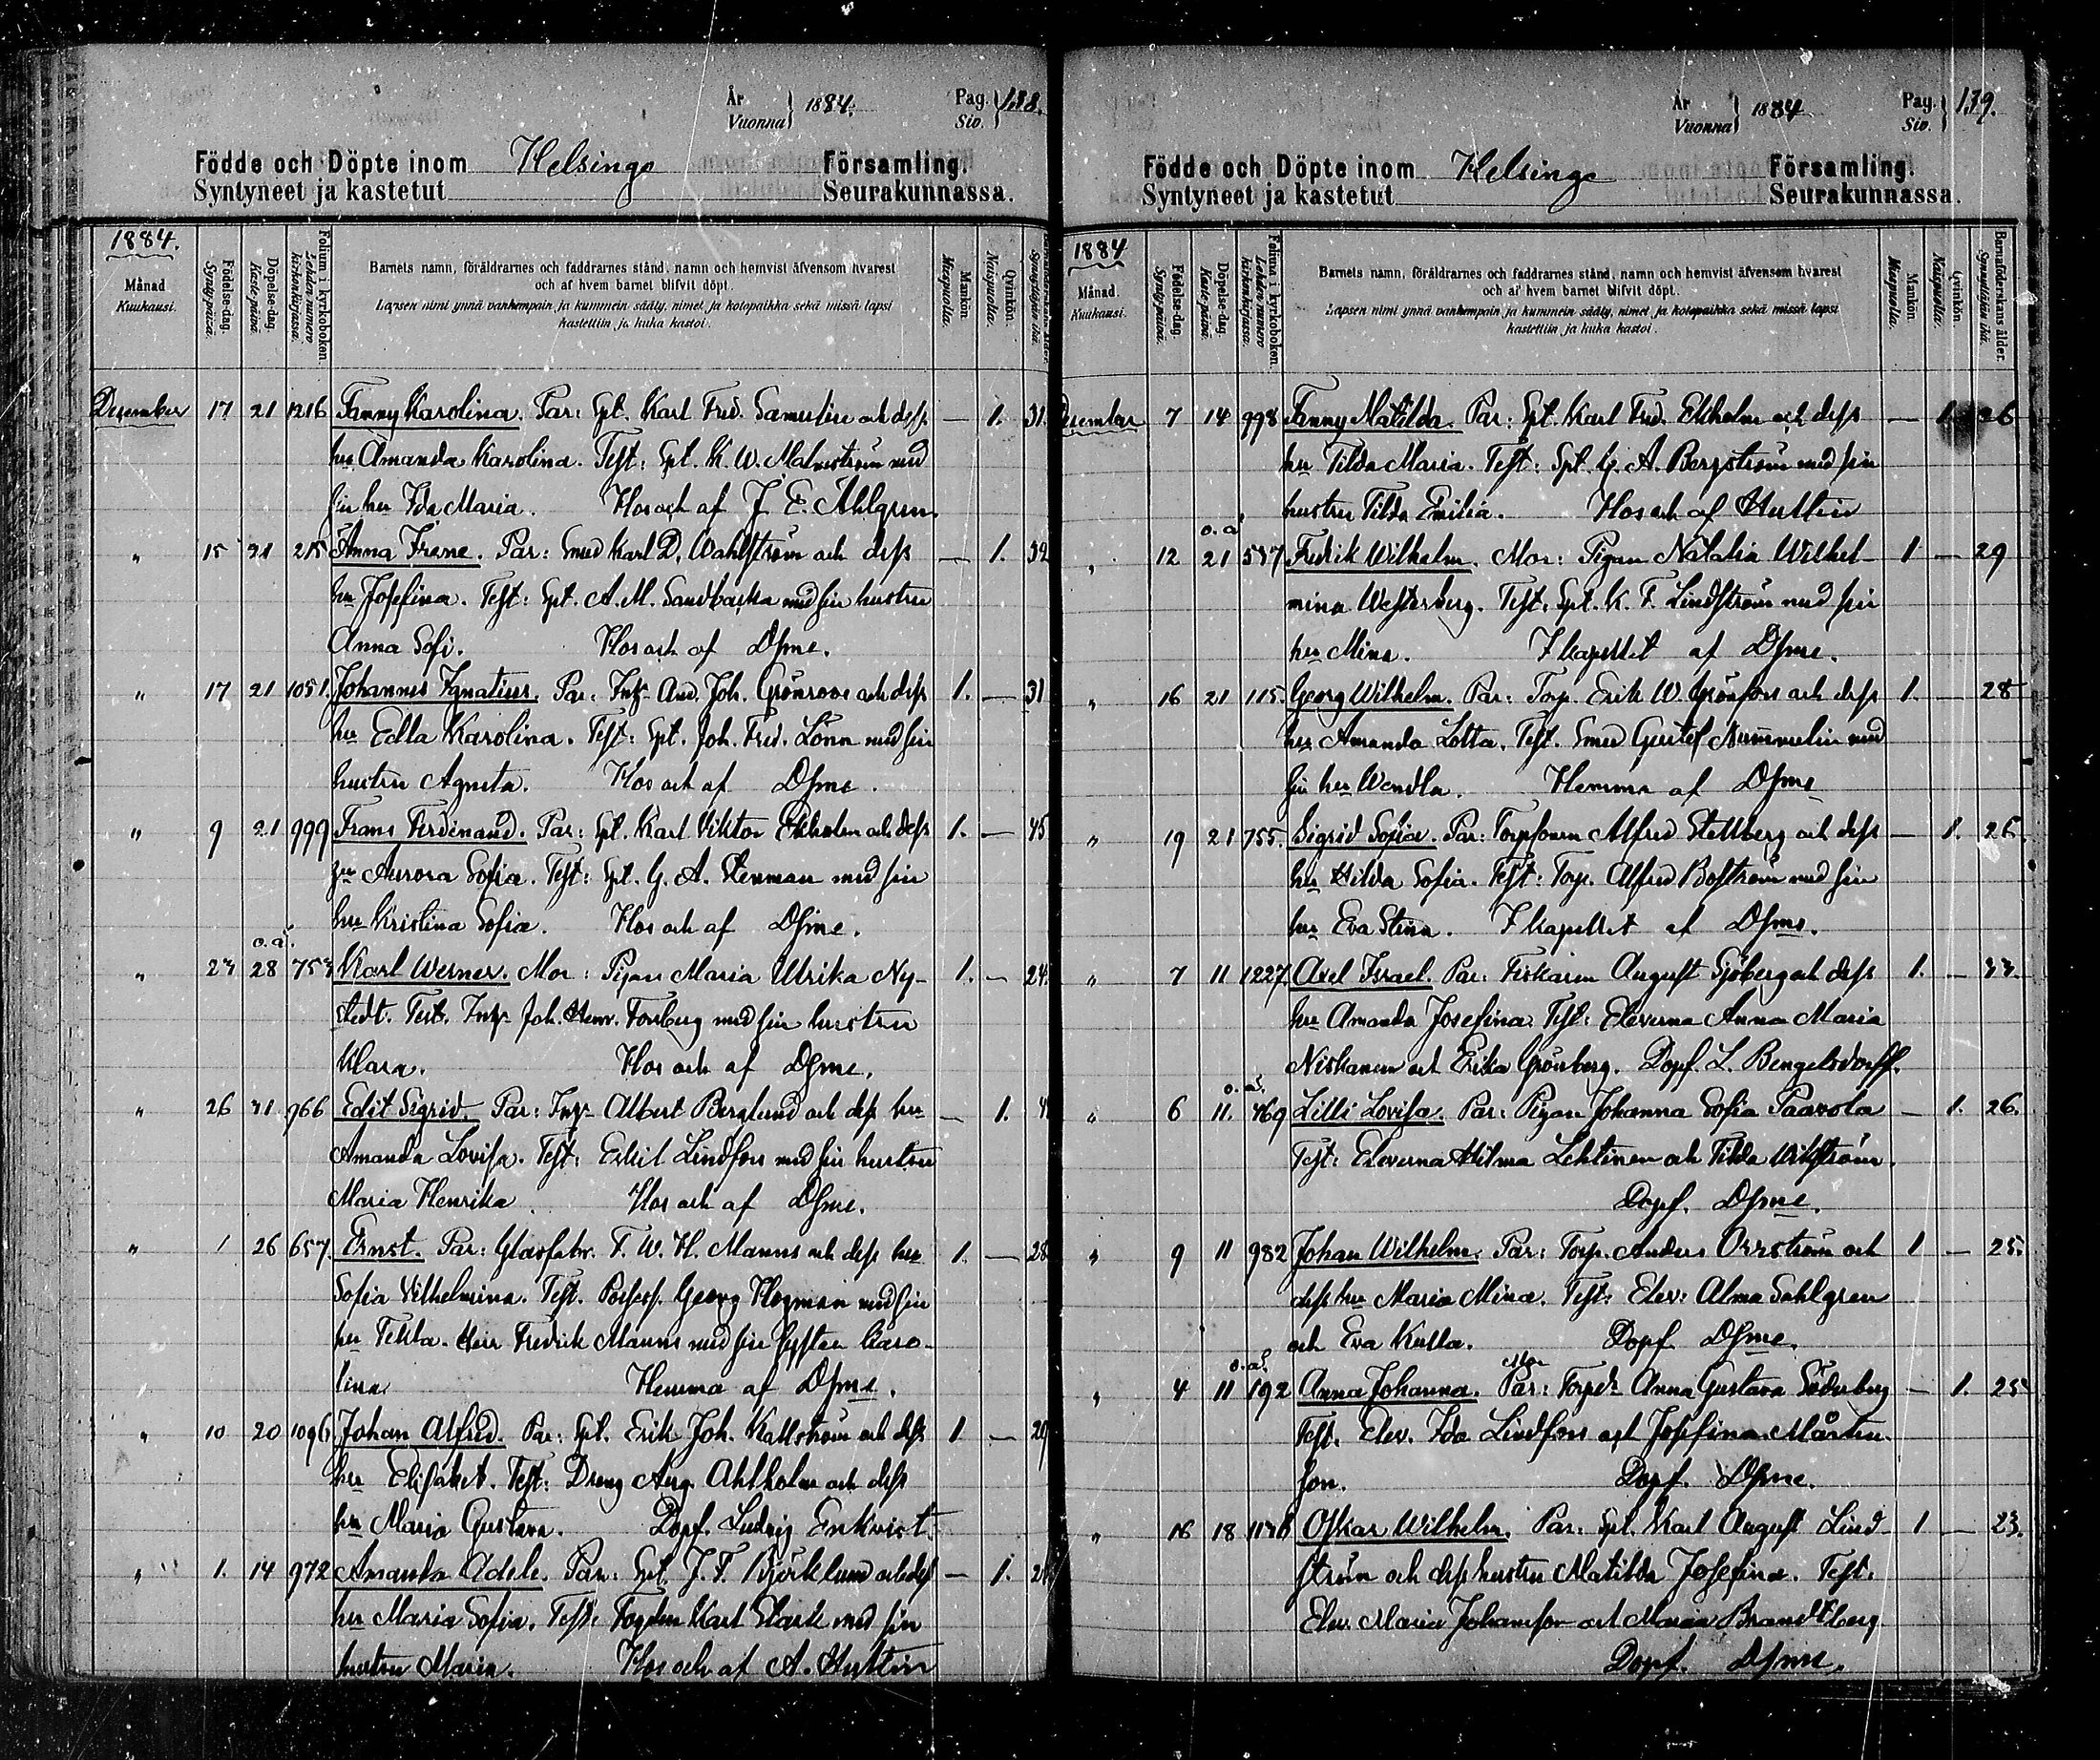 År
Vuonna 1884. Pag.
Siv. 138.
Födde och Döpte inom Helsinge Församling.
Syntyneet ja kastetut Seurakunnassa.
1884.
Månad
Kuukausi.
Födelse-dag.
Syntypäivä.
Döpelse-dag.
Kaste-päivä.
Folium i kyrkoboken.
Lehden numero
kirkonkirjassa.
Barnets namn, föräldrarnes och faddrarnes stånd, namn och hemvist äfvensom hvarest
och af hvem barnet blifvit döpt.
Lapsen nimi ynnä vanhempain ja kummein sääty, nimet ja kotopaikka sekä missä lapsi
kastettiin ja kuka kastoi.
Mankön.
Miespuolia.
Qvinkön.
Naispuolia.
Desember 17 21 1216 Fanny Karolina. Par: Spt. Karl Fred. Samulin och dess — 1. 31.
hu Amanda Karolina. Test: Spt. K. W. Malmström med
sin hu Ida Maria. Hos och af J. E. Ahlgren.
" 15 21 215 Anna Irene. Par: Smed Karl D. Wahlström och dess — 1. 32
hu Josefina. Test: Spt. A. M. Sandbacka med sin hustru
Anna Sofi. Hos och af Dsme.
" 17 21 1051. Johannes Ignatius. Par: Inh. And. Joh. Grönroos och dess 1. — 31
hu Edla Karolina. Test: Spt. Joh. Fred. Lönn med sin
hustru Agneta. Hos och af Dsme.
" 9 21 999 Frans Ferdinand. Par: Spt. Karl Viktor Ekholm och dess 1. — 45
hu Aurora Sofia. Test: Spt. G. A. Stenman med sin
hu Kristina Sofia. Hos och af Dsme.
o. ä.
" 23 28 753 Karl Werner. Mor: Pigan Maria Ulrika Ny- 1. — 24.
stedt. Test. Inh. Joh. Henr. Forsberg med sin hustru
Klara. Hos och af Dsme.
" 26 31 966 Edit Sigrid. Par: Inh. Albert Berglund och dess hu — 1.
Amanda Lovisa. Test: Eskil Lindfors med sin hustru
Maria Henrika. Hos och af Dsme.
" 1 26 657. Ernst. Par: Glasfabr. F. W. H. Manns och dess hu 1. — 28
Sofia Vilhelmina. Test. Possess. Georg Hogman med sin
hu Tekla. Herr Fredrik Manns med sin syster Caro-
lina Hemma af Dsme.
" 10 20 1096 Johan Alfred. Par: Spt. Erik Joh. Kallström och dess 1 — 29
hu Elisabet. Test: Dreng Aug. Ahlholm och dess
hu Maria Gustava. Döpf. Ludvig Enkvist.
" 1. 14 972 Amanda Adele. Par: Spt. J. F. Björklund och dess — 1.
hu Maria Sofia. Test: Fogden Karl Stark med sin
hustru Maria. Hos och af A. Huttin
År
Vuonna 1884 Pag.
Siv. 139.
Födde och Döpte inom Helsinge Församling.
Syntyneet ja kastetut Seurakunnassa.
1884
Månad.
Kuukausi.
Födelse-dag.
Syntypäivä.
Döpelse-dag.
Kaste-päivä.
Folium i kyrkoboken.
Lehden numero
kirkonkirjassa.
Barnets namn, föräldrarnes och faddrarnes stånd, namn och hemvist äfvensom hvarest
och af hvem barnet blifvit döpt.
Lapsen nimi ynnä vanhempain ja kummein sääty, nimet ja kotopaikka sekä missä lapsi
kastettiin ja kuka kastoi.
Mankön.
Miespuolia.
Qvinkön.
Naispuolia.
Barnaföderskans ålder.
Synnyttäjän ikä.
Desember 7 14 998 Fanny Matilda. Par: Spt. Karl Fred. Ekholm och dess — 1. 26
hu Tilda Maria. Test: Spt. G. A. Bergström med sin
hustru Tilda Emilia. Hos och af Huttin
o. ä
" 12 21 537 Fredrik Wilhelm. Mor: Pigan Natalia Wilhel- 1 — 29
mina Westerberg. Test: Spt. K. F. Lindström med sin
hu Mina. I kapellet af Dsme.
" 16 21 115. Georg Wilhelm. Par: Torp. Erik W. Grönfors och dess 1. — 28
hu Amanda Lotta. Test. Smed Gustaf Nummelin med
sin hu Wendla. Hemma af Dsme
" 19 21 755. Sigrid Sofia. Par: Torpsonen Alfred Stellberg och dess — 1. 26.
hu Hilda Sofia. Test: Torp. Alfred Boström med sin
hu Eva Stina. I kapellet af Dsme.
" 7 11 1227. Axel Israel. Par: Fiskaren August Sjöberg och dess 1. — 33.
hu Amanda Josefina. Test: Eleverna Anna Maria
Niskanen och Erika Grönberg. Döpf. L. Bengelsdorff.
o. ä.
" 6 11. 469 Lilli Lovisa. Par: Pigan Johanna Sofia Paavola — 1. 26.
Test: Eleverna Hilma Lehtinen och Tilda Wikström.
Döpf. Dsme.
" 9 11 982 Johan Wilhelm. Par: Torp. Anders Orrström och 1 — 25.
dess hu Maria Mina. Test: Elev: Alma Sahlgren
och Eva Kulla. Döpf. Dsme.
o. ä. Mor
" 4 11 192 Anna Johanna. Par: Torpdr Anna Gustava Söderberg — 1. 25
Test. Elev. Ida Lindfors och Josefina Mårten-
son. Döpf. Dsme.
" 16 18 Oskar Wilhelm. Par: Spt. Karl August Lind- 1 — 23.
ström och dess hustru Matilda Josefina. Test.
Elev. Maria Johansson och Maria Brandtberg
Döpf. Dsme.